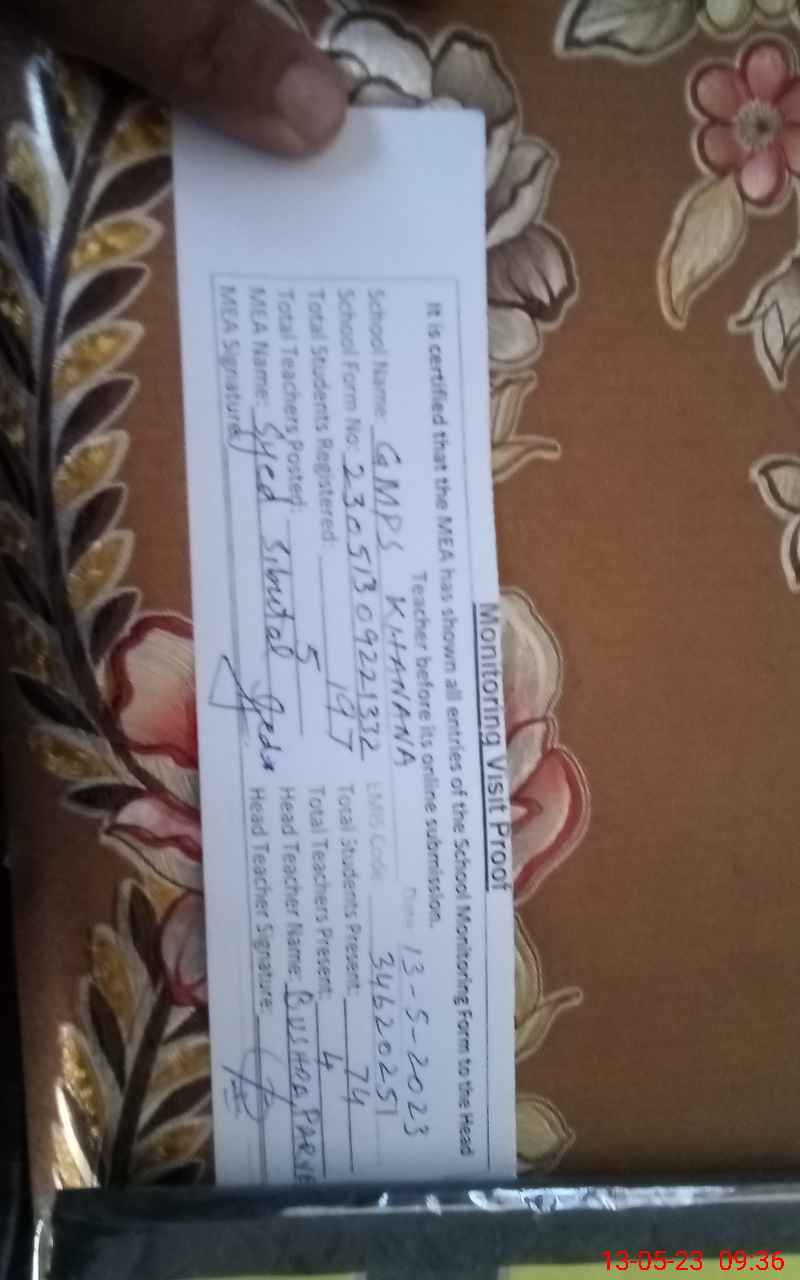 Monitoring Visit Proof
It is certified that the MEA has shown all entries of the School Monitoring Form to the Head
Teacher before its online submission.
Date: 13-5-2023
School Name: GMPS KHANANA EMIS Code: 34620251
School Form No: 230513092221332 Total Students Present: 74
Total Students Registered: 197 Total Teachers Present: 4
Total Teachers Posted: 5 Head Teacher Name: BUSHRA PARVE
MEA Name: Syed Sibutal Head Teacher Signature:
MEA Signature
13-05-23 09:36